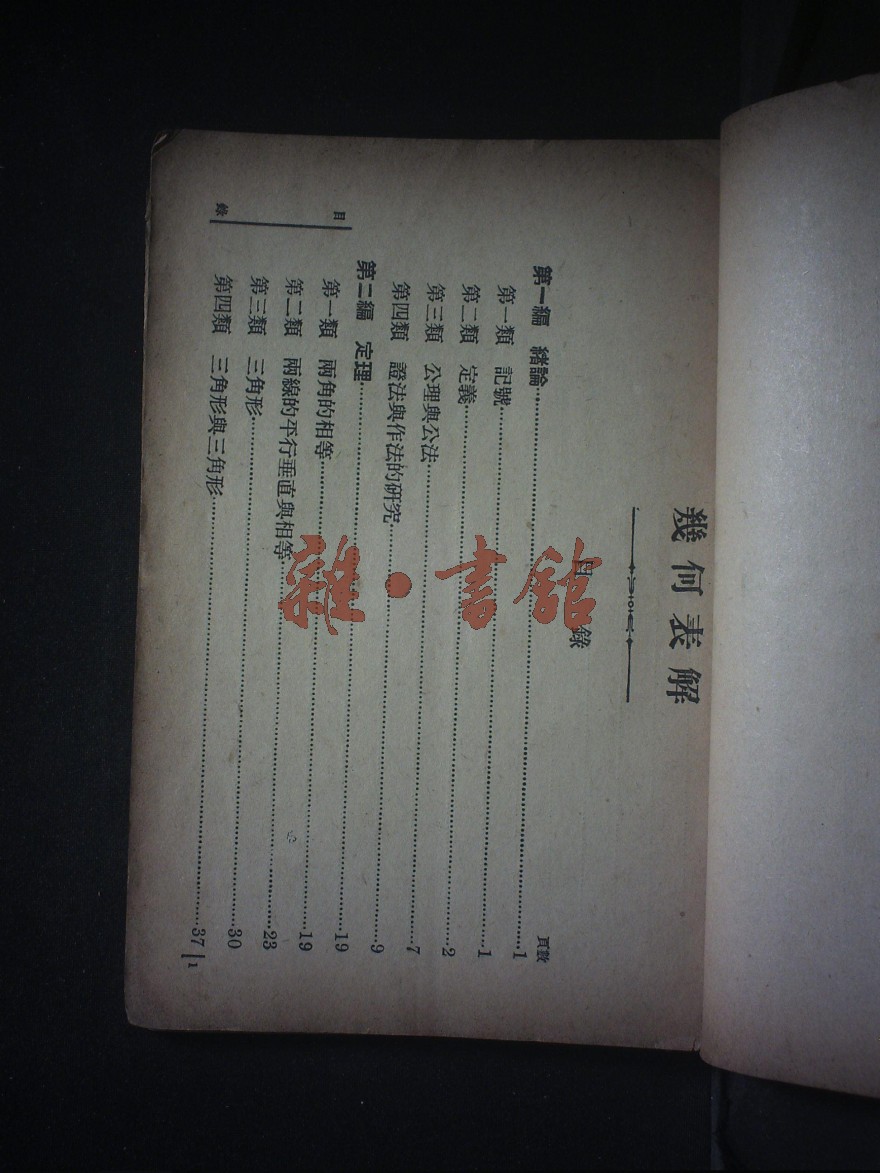 幾何表解
目錄
頁數
第一編 緒論……1
第一類 記號……1
第二類 定義……2
第三類 公理與公法……7
第四類 證法與作法的研究……9
第二編 定理……19
第一類 兩角的相等……19
第二類 兩線的平行垂直與相等……23
第三類 三角形……30
第四類 三角形與三角形……37
目錄
1
雜·書館